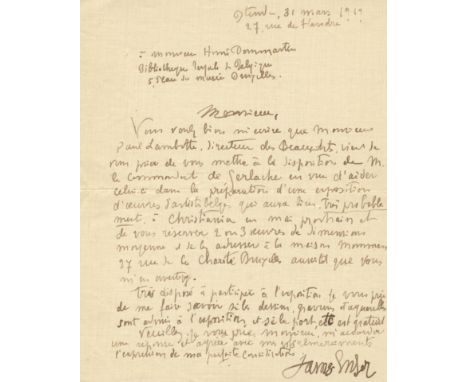 Ostende, 31 mars 1919
27 rue de Flandre
à monsieur Henri Dommartin
Bibliothèque royale de Belgique
5 Place du musée Bruxelles.
Monsieur,
Vous voulez bien m'écrire que Monsieur
Paul Lambotte, directeur des Beaux-Arts, vient de
vous prier de vous mettre à la disposition de M.
le Commandant de Gerlache en vue d'aider
celui-ci dans la préparation d'une exposition
d'œuvres d'artistes belges qui aura lieu, très probable
ment, à Christiania en mai prochain et
de vous réserver 2 ou 3 œuvres de dimensions
moyennes et de les adresser à la maison Mommen
27 rue de la Charité Bruxelles aussitôt que vous
m'en avertirez.
Très disposé à participer à l'exposition je vous prie
de me faire savoir si les dessins, gravures et aquarelles
sont admis à l'exposition et si le port est gratuit
Veuillez, je vous prie, monsieur, m'accorder
une réponse et agréer avec mes
l'expression de ma parfaite considération
James Ensor